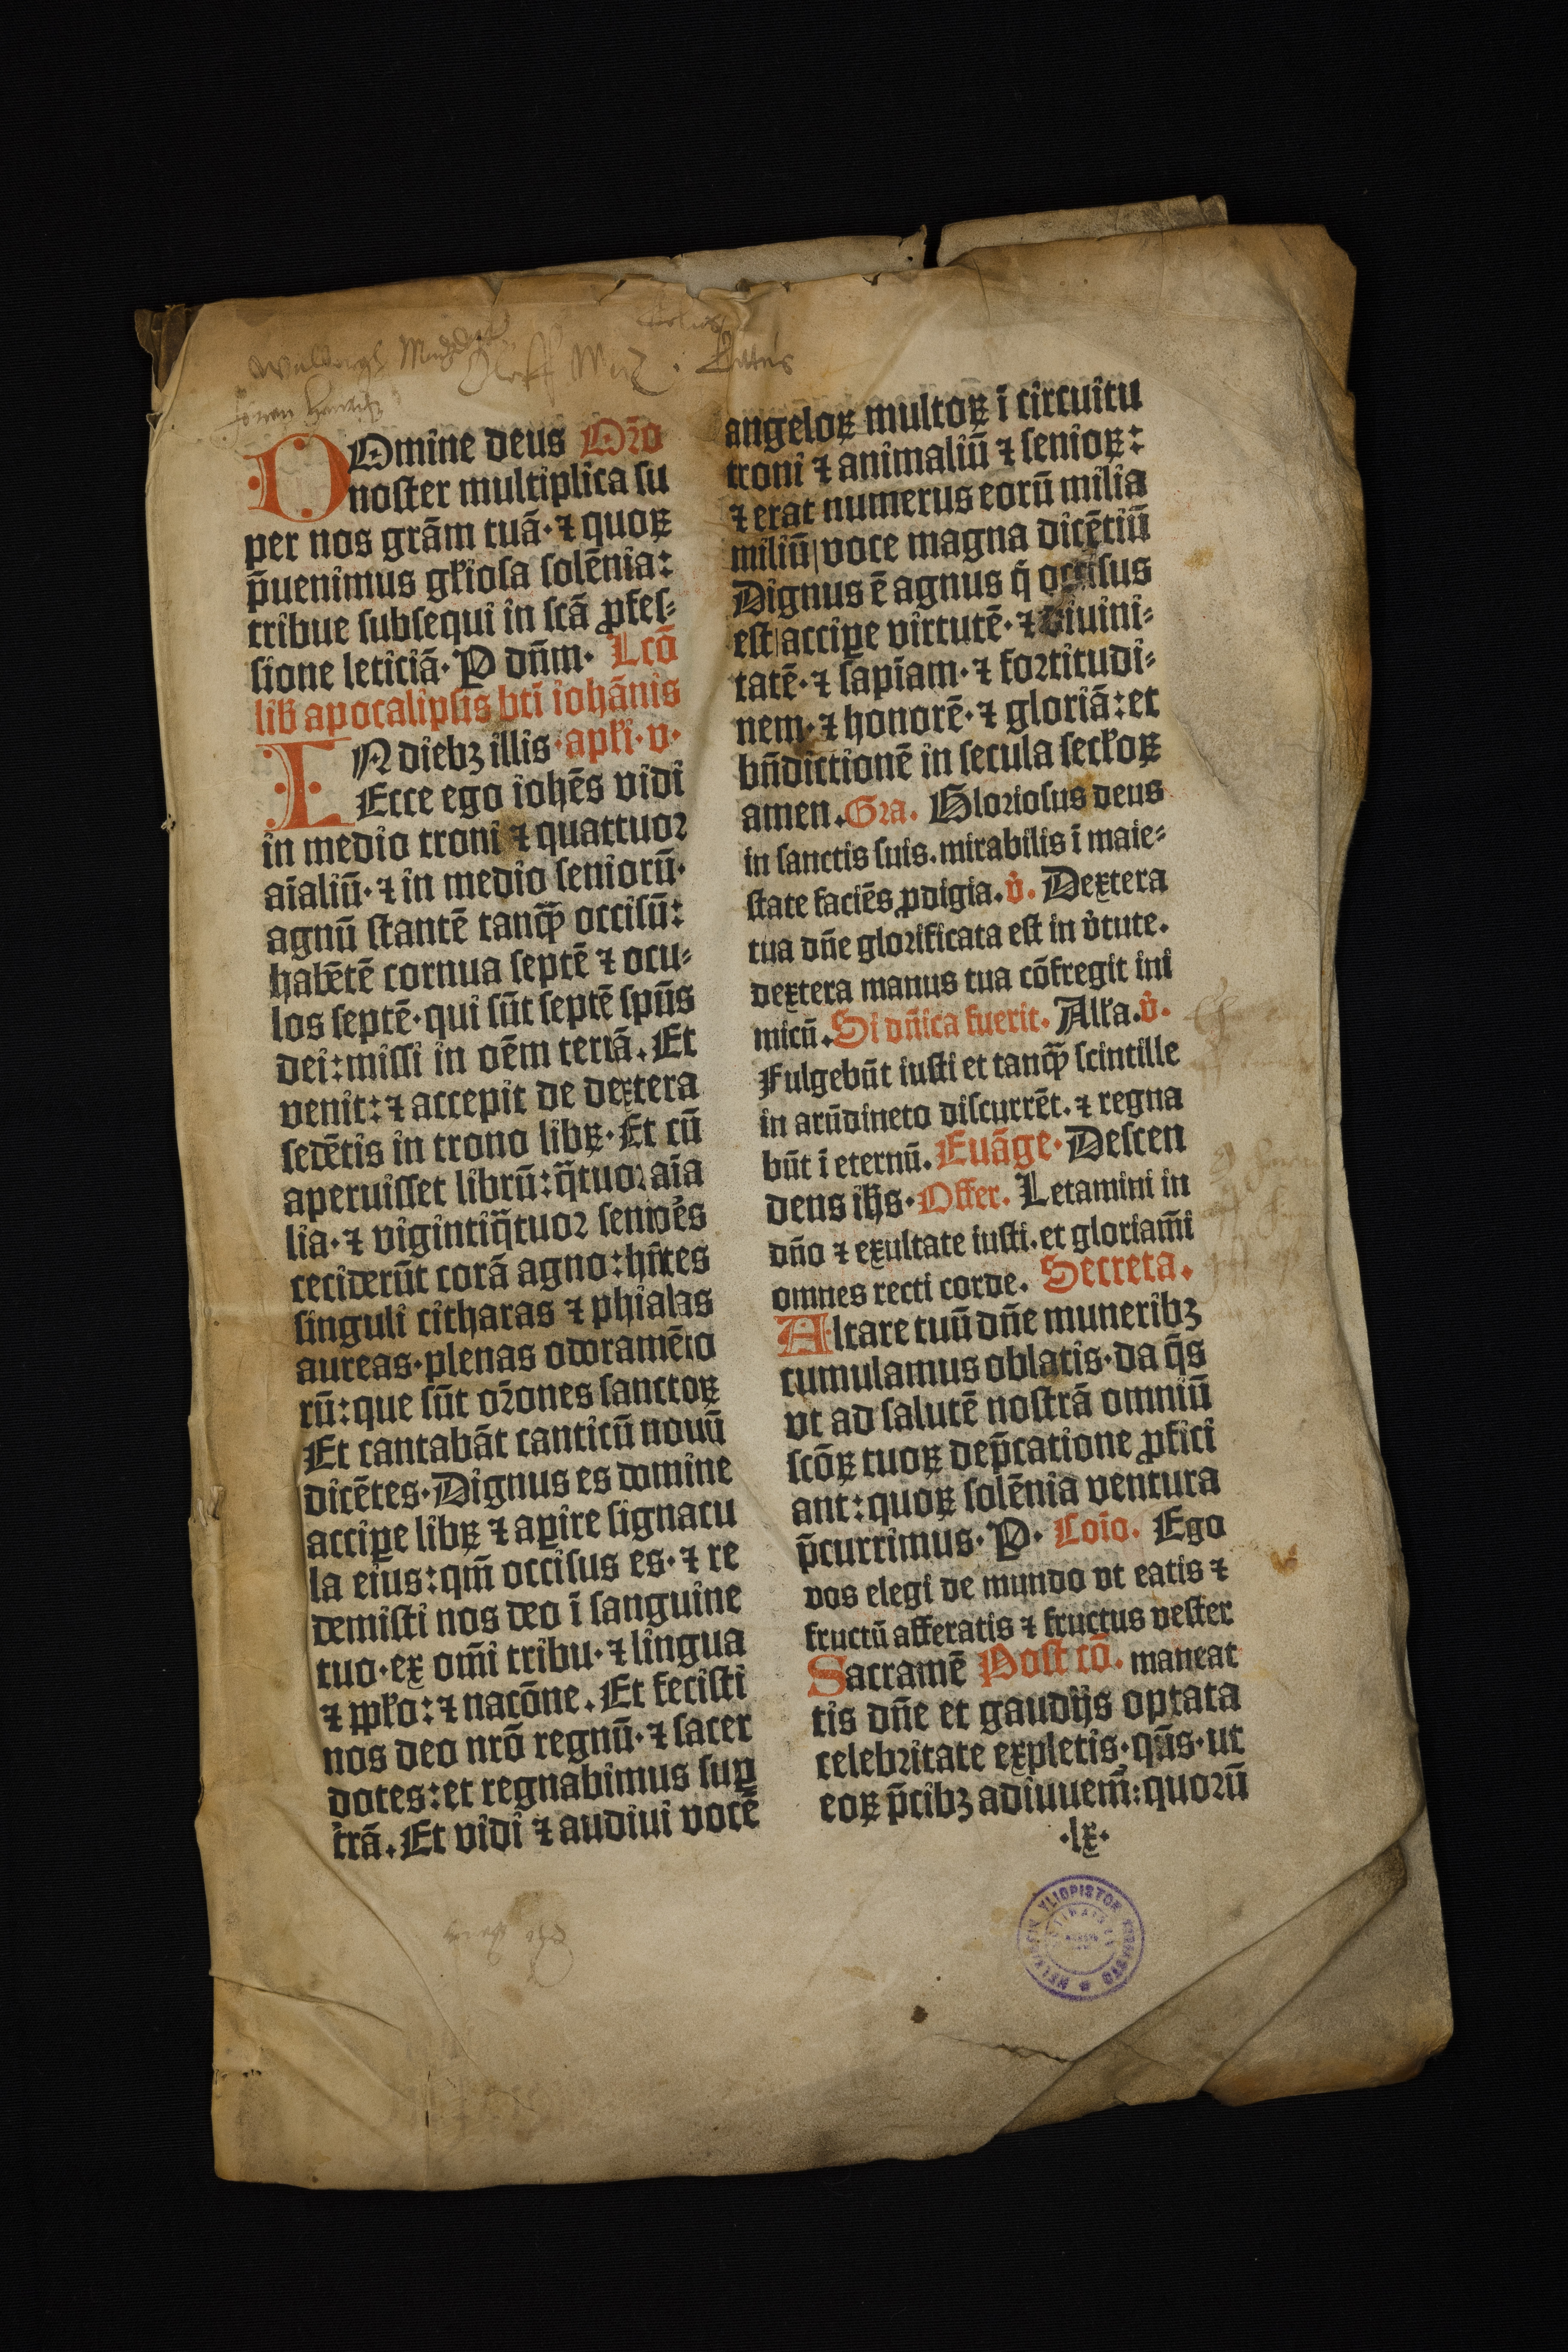 DOmine deus Oro̅
noster multiplica su
per nos gra̅m tua̅· ⁊ quoꝝ
p̅uenimus gl̓iosa sole̅nia:
tribue subsequi in sc̅a ꝓfes⸗
sione leticia̅· P dn̅m· Lco̅
lib̓ apocalipsis bt̅i ioha̅nis
INdiebꝫ illis ·apl̓i·v·
Ecce ego iohe̅s vidi
in medio troni ⁊ quattuor
ai̅aliu̅· ⁊ in medio senioru̅·
agnu̅ stante̅ tanꝙ̅ occisu̅:
habe̅te̅ cornua septe̅ ⁊ ocu⸗
los septe̅· qui su̅t septe̅ spu̅s
dei: missi in oe̅m terra̅. Et
venit: ⁊ accepit de dextera
sede̅tis in trono libꝝ· Et cu̅
aperuisset libru̅: q̅tuor ai̅a
lia· ⁊ vigintiq̅tuor senio̓es
ceciderūt cora̅ agno: hn̅tes
singuli citharas ⁊ phialas
aureas· plenas odorame̅to
ru̅: que su̅t oro̅nes sanctoꝝ
Et cantaba̅t canticu̅ nouu̅
dice̅tes· Dignus es domine
accipe libꝝ ⁊ aꝑire signacu
la eius: qm̅ occisus es· ⁊ re
demisti nos deo i̅ sanguine
tuo· ex om̅i tribu· ⁊ lingua
⁊ ppl̓o: ⁊ naco̅ne. Et fecisti
nos deo nro̅ regnu̅· ⁊ sacer
dotes: et regnabimus suꝑ
tra̅. Et vidi ⁊ audiui voce̅
angeloꝝ multoꝝ i̅ circuitu
troni ⁊ animaliu̅ ⁊ senioꝝ:
⁊ erat numerus eoru̅ milia
miliu̅| voce magna dice̅tiu̅
Dignus e̅ agnus q̓ occisus
est| accipe virtute̅· ⁊ diuini⸗
tate̅· ⁊ sapi̅am· ⁊ fortitudi⸗
nem· ⁊ honore̅· ⁊ gloria̅: et
bn̅dictione̅ in secula secl̓oꝝ
amen. Gra. Gloriosus deus
in sanctis suis. mirabilis i̅ maie⸗
state facie̅s ꝓdigia. v̓. Dextera
tua dn̅e glorificata est in v̓tute.
dextera manus tua co̅fregit ini
micu̅. Si dn̅ica fuerit. All̓a. v̓.
Fulgebu̅t iusti et tanꝙ̅ scintille
in aru̅dineto discurre̅t. ⁊ regna
bu̅t i̅ eternu̅. Eua̅ge· Descen
dens ih̅s· Offer. Letamini in
dn̅o ⁊ exultate iusti. et gloriam̅i
omnes recti corde. Secreta.
Altare tuu̅ dn̅e muneribꝫ
cumulamus oblatis· da q̅s
vt ad salute̅ nostra̅ omniu̅
sco̅ꝝ tuoꝝ dep̅catione ꝓfici
ant: quoꝝ sole̅nia ventura
p̅currimus· P· Coi̅o. Ego
vos elegi de mundo vt eatis ⁊
fructu̅ afferatis ⁊ fructus vester
Sacrame̅ Post co̅. maneat
tis dn̅e et gaudijs optata
celebritate expletis· qu̅s· ut
eoꝝ p̅cibꝫ adiuuem̅: quoru̅
·lx·